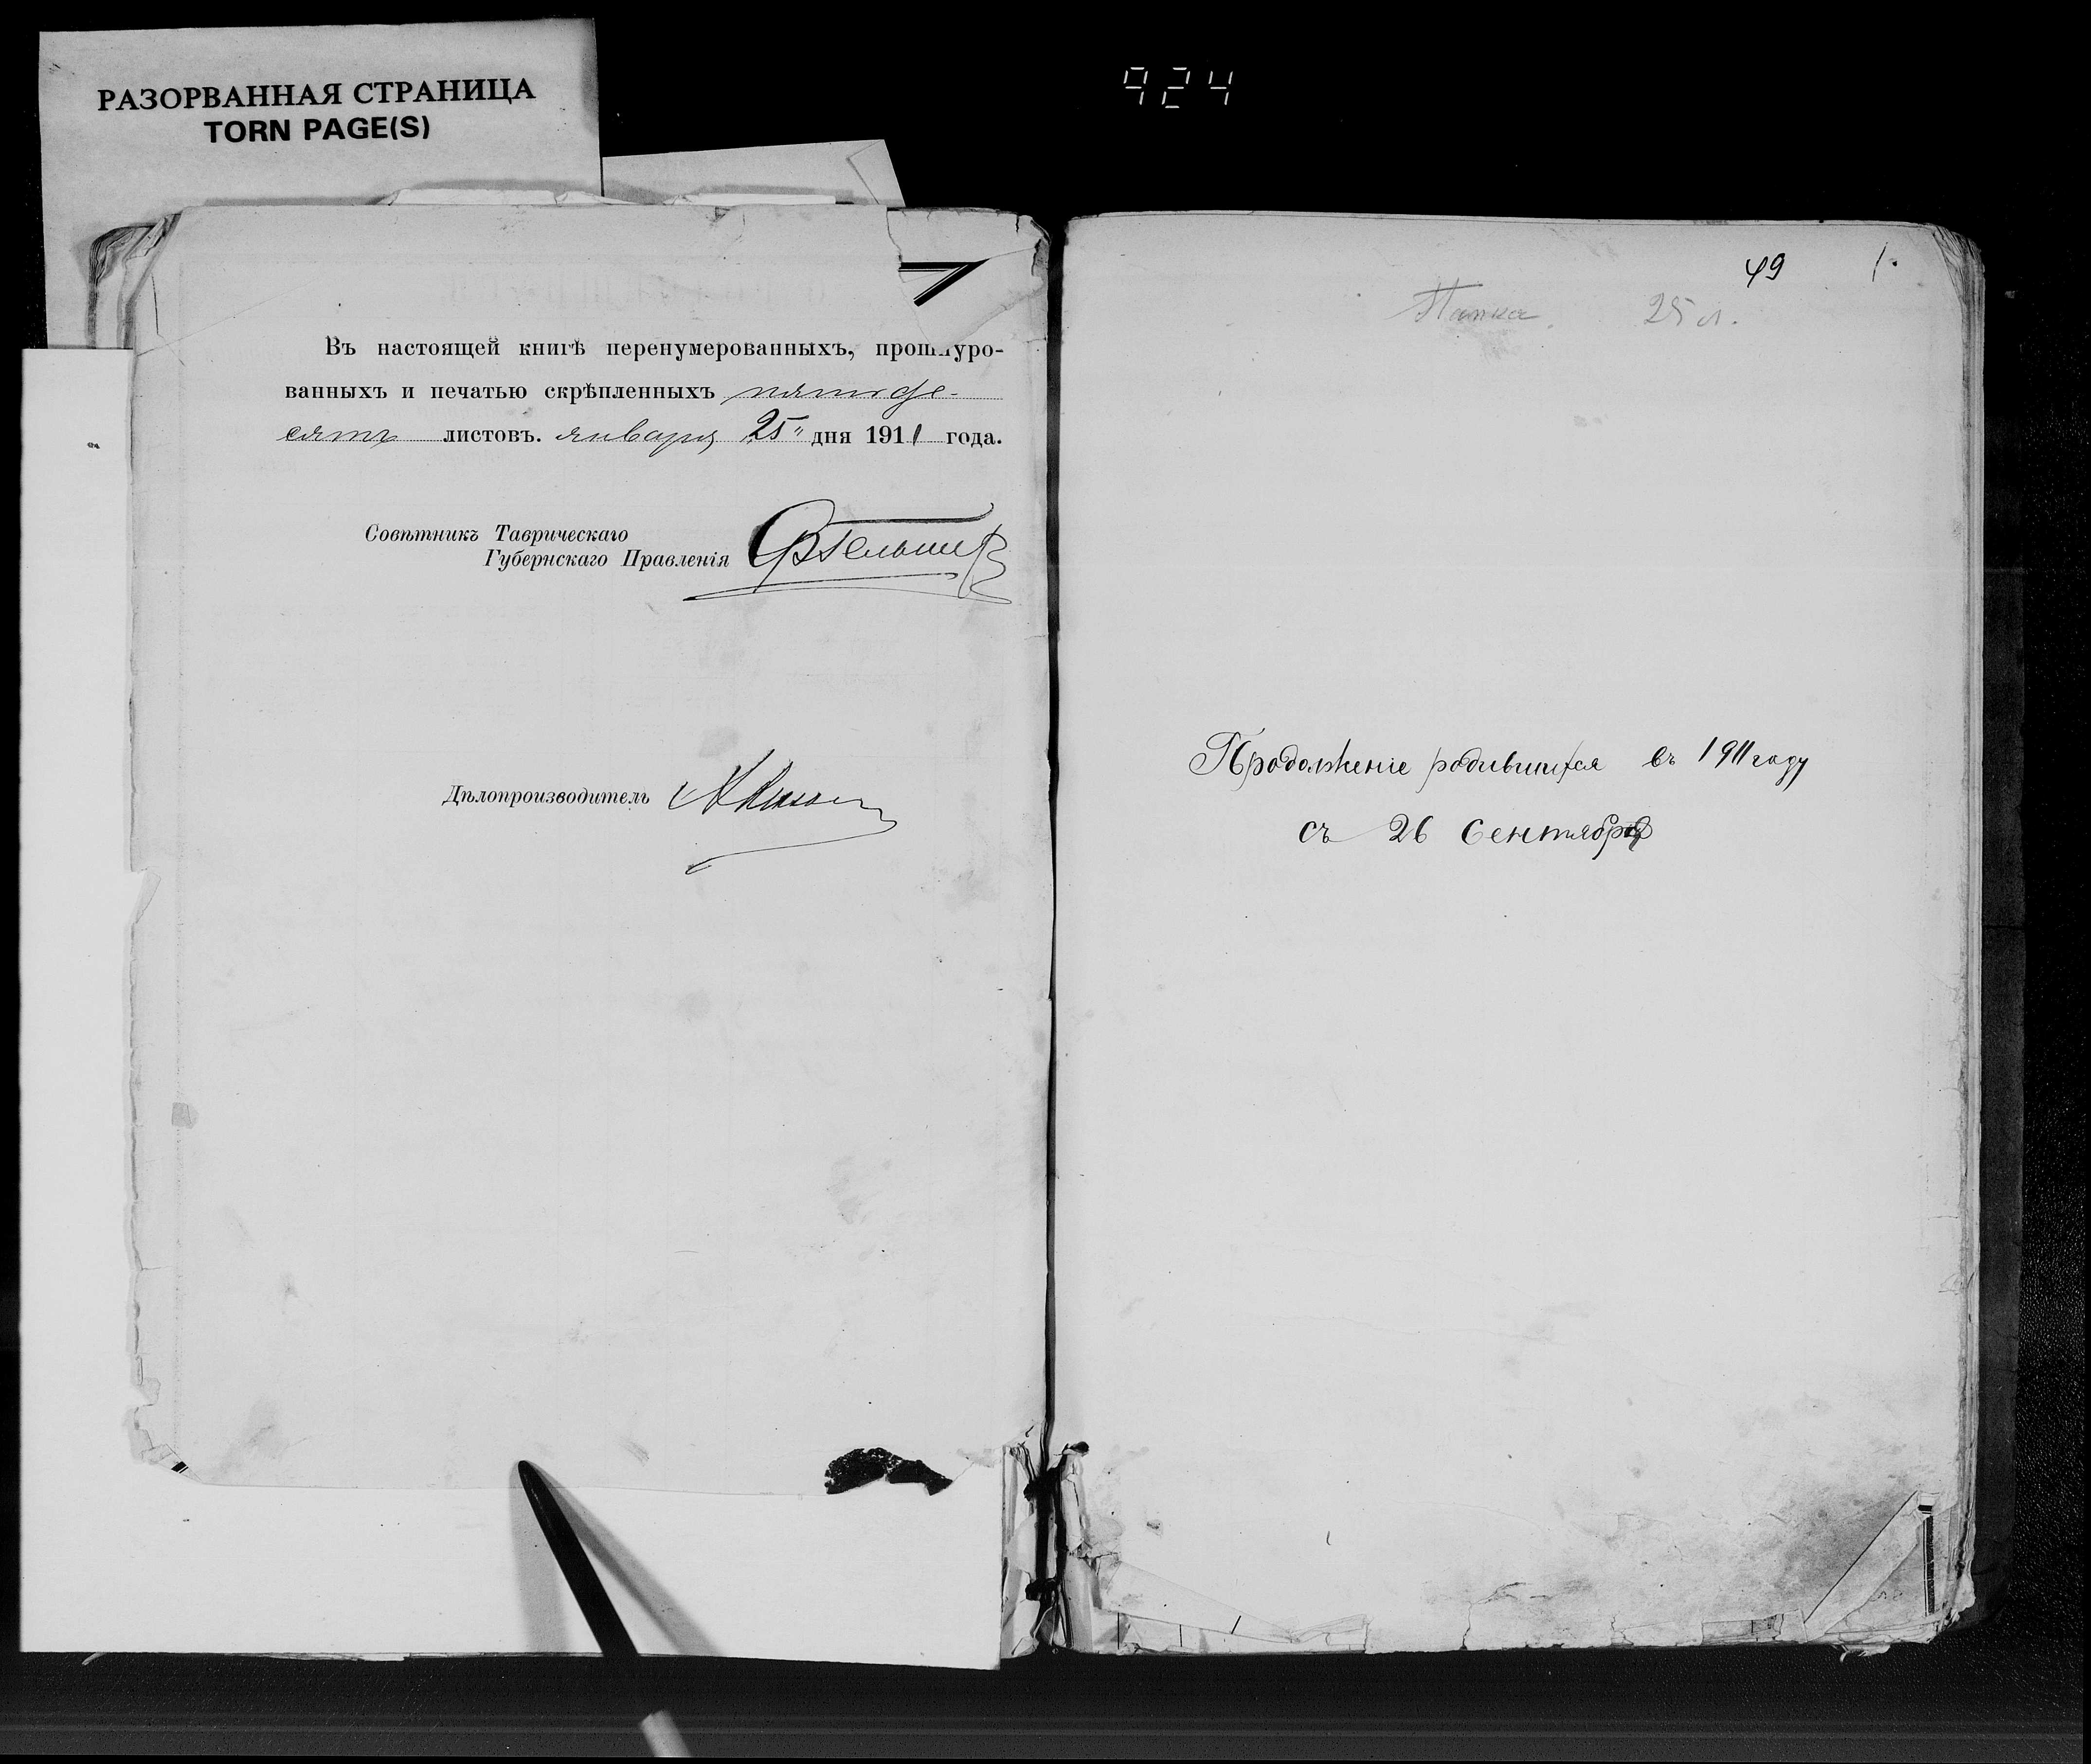 924
РАЗОРВАННАЯ СТРАНИЦА
TORN PAGE(S)
Въ настоящей книгѣ перенумерованныхъ, прошнуро-
ванныхъ и печатью скрѣпленныхъ пятиде-
сятъ листовъ. января 25" дня 1911 года.
Совѣтникъ Таврическаго
Губернскаго Правленія
Дѣлопроизводитель
49 1.
Папка. 25 л.
Продолженіе родившихся въ 1911 году
съ 26 Сентября